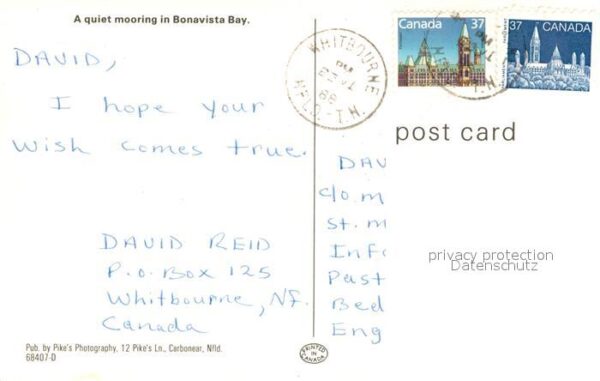 A quiet mooring in Bonavista Bay.
Canada 37
37 CANADA
WHITBOURNE
PM
NFLD.-T.N.
post card
DAVID,
I hope your
wish comes true.
DAVID REID
P.O. Box 125
Whitbourne, NF.
Canada
DAV
c/o m
St. m
Inf
Past
Bed
Eng
privacy protection
Datenschutz
Pub. by Pike's Photography, 12 Pike's Ln., Carbonear, Nfld.
68407-D
PRINTED
IN
CANADA